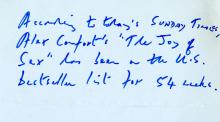 According to today's SUNDAY TIMES,
Alex Comfort's "The Joy of
Sex" has been on the U.S.
bestseller list for 54 weeks.